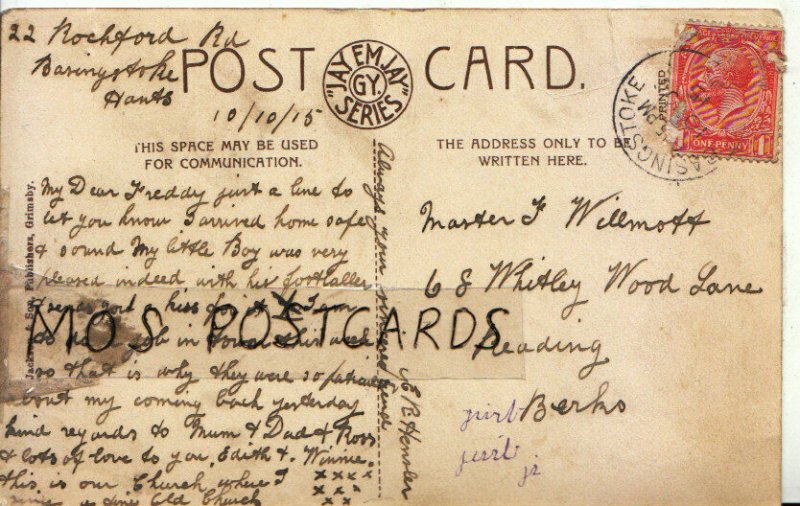 22 Rochford Rd
Basingstoke
Hants
10/10/15
POST CARD.
"JAY EM JAY"
GY.
SERIES
THIS SPACE MAY BE USED
FOR COMMUNICATION.
THE ADDRESS ONLY TO BE
WRITTEN HERE.
BASINGSTOKE
PM
ONE PENNY
PRINTED
Publishers, Grimsby.
My Dear Freddy just a line to
let you know I arrived home safe
& sound My little Boy was very
pleased indeed with his footballer
& a kiss for it I am
job in town this week
so that is why they were so
bout my coming back yesterday
kind regards to Mum & Dad & Ross
& lots of love to you, Edith & Winnie.
this is our Church where I
a fine Old Church
x x x x
x x x
x x
Always your sincere friend
E R
Master F Willmott
68 Whitley Wood Lane
Reading
Berks
MO'S POSTCARDS